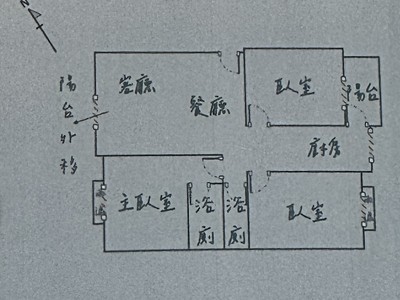 N
陽台外移
客廳
餐廳
臥室
陽台
廚房
主臥室
浴廁
浴廁
臥室